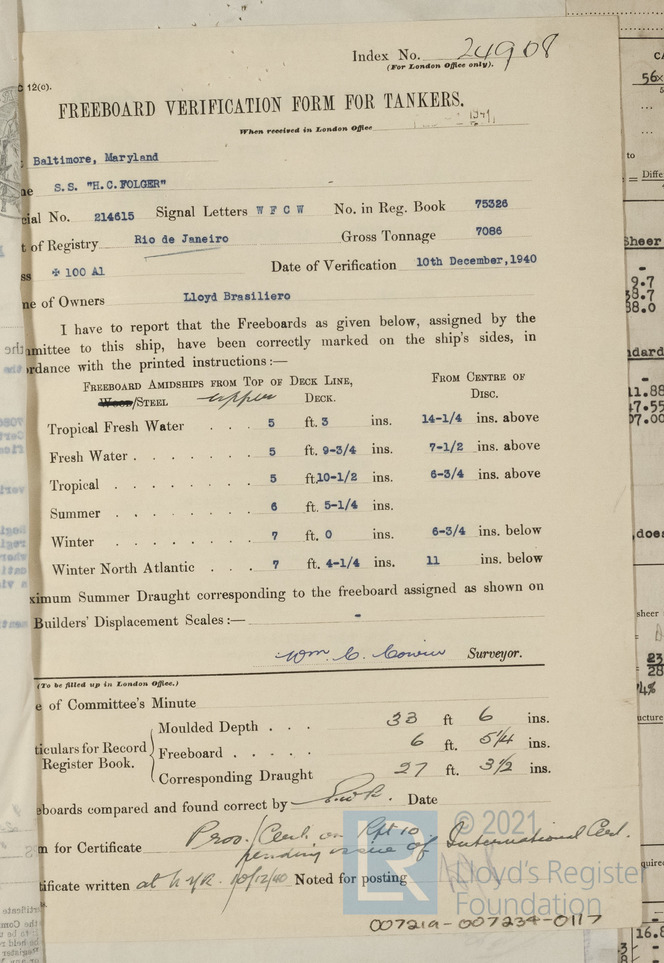 Index No. 24908
(For London Office only).
12(o).
FREEBOARD VERIFICATION FORM FOR TANKERS.
When received in London Office 1941
: Baltimore, Maryland
ne S.S. "H.C.FOLGER"
cial No. 214615 Signal Letters W F C W No. in Reg. Book 75326
t of Registry Rio de Janeiro Gross Tonnage 7086
ss ✠ 100 A1 Date of Verification 10th December,1940
ne of Owners Lloyd Brasiliero
I have to report that the Freeboards as given below, assigned by the
mmittee to this ship, have been correctly marked on the ship's sides, in
rdance with the printed instructions:—
FREEBOARD AMIDSHIPS FROM TOP OF DECK LINE, FROM CENTRE OF
WOOD/STEEL upper DECK. DISC.
Tropical Fresh Water . . . 5 ft. 3 ins. 14-1/4 ins. above
Fresh Water . . . . . . 5 ft. 9-3/4 ins. 7-1/2 ins. above
Tropical . . . . . . . 5 ft. 10-1/2 ins. 6-3/4 ins. above
Summer . . . . . . . 6 ft. 5-1/4 ins.
Winter . . . . . . . 7 ft. 0 ins. 6-3/4 ins. below
Winter North Atlantic . . . 7 ft. 4-1/4 ins. 11 ins. below
ximum Summer Draught corresponding to the freeboard assigned as shown on
Builders' Displacement Scales:— -
Wm. C. Cowie Surveyor.
(To be filled up in London Office.)
e of Committee's Minute
Moulded Depth . . . 33 ft 6 ins.
ticulars for Record Freeboard . . . . . 6 ft. 5 1/4 ins.
Register Book.
Corresponding Draught 27 ft. 3 1/2 ins.
eboards compared and found correct by Date
m for Certificate Prov/Cert. on Rpt 10
pending issue of International Cert.
tificate written at N.Y.K. 10/12/40 Noted for posting
© 2021
LR Lloyd's Register
Foundation
007219-007234-0117
56x
to
= Diffe
Sheer
9.7
38.7
38.0
ndard
11.88
47.55
07.00
does
sheer
23
28
ucture
quired
16.8